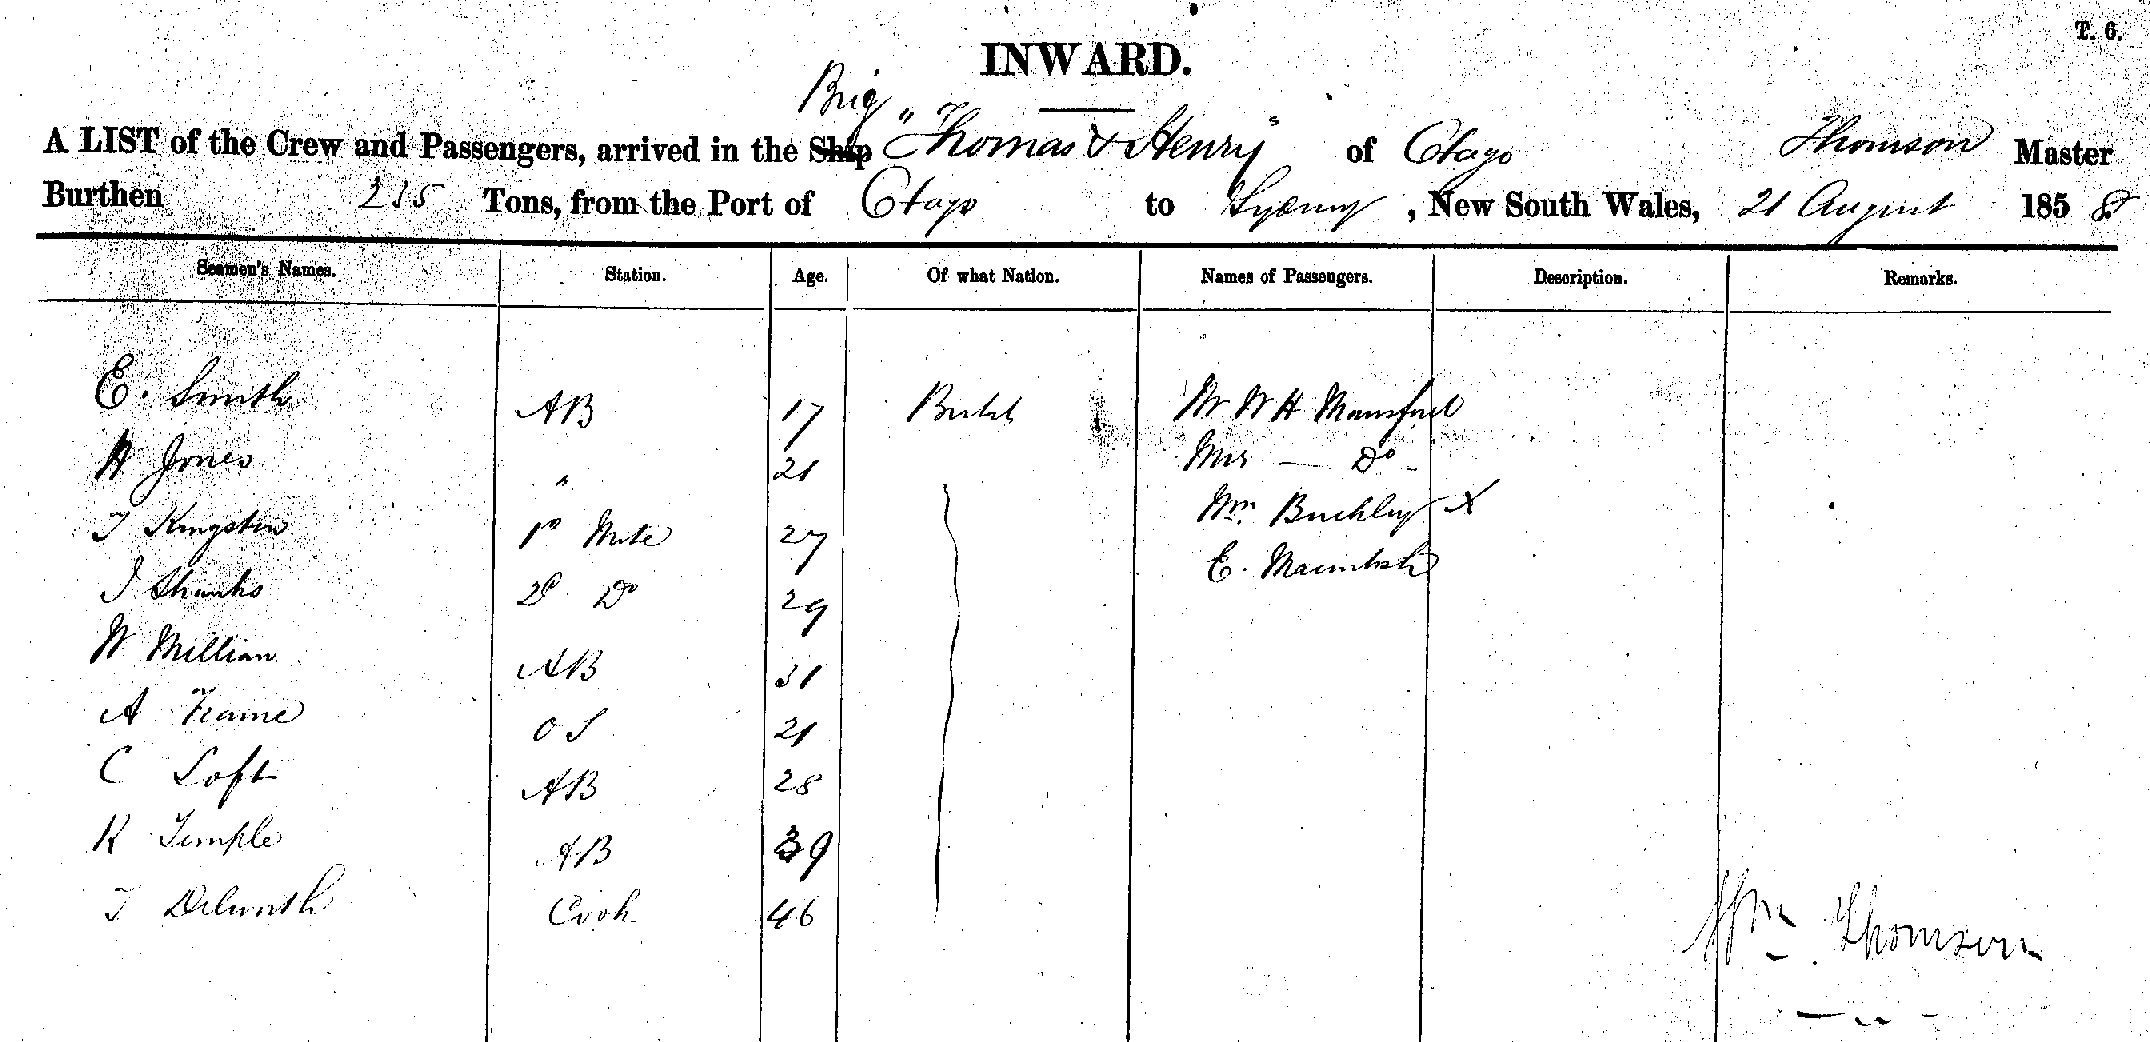 T. 6.
INWARD.
Brig
A LIST of the Crew and Passengers, arrived in the Ship "Thomas & Henry" of Otago Thomson Master
Burthen 235 Tons, from the Port of Otago to Sydney, New South Wales, 21 August 1858
Seamen's Names. Station. Age. Of what Nation. Names of Passengers. Description. Remarks.
E. Smith AB 17 British Mr W H Mansford
H Jones " 21 Mrs — Do -
T Kingston 1st Mate 27 Wm. Buckley X
J Shanks 2d Do 29 E. Macintosh
W Millian AB 31
A Frame O S 21
C Loft AB 28
R Temple AB 39
T Dilworth Cook 46
Wm. Thomson